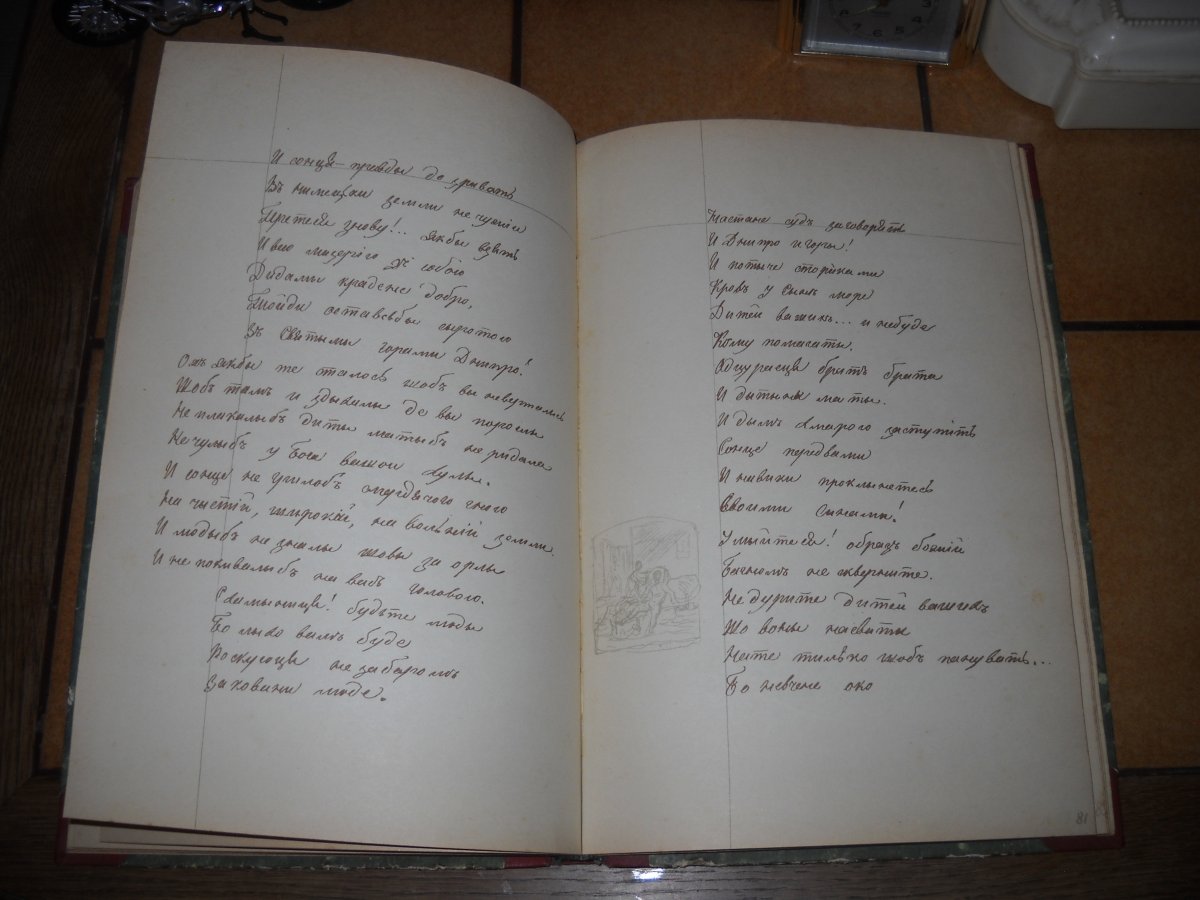 И сонця-правды дозриватъ
Въ нимецки земли не чужіи
Претеся знову!... Якбы взять
И всю мизерію зъ собою
Дидамы крадене добро,
Тойди оставсьбы сыротою
Зъ Святымы горами Днипро!
Охъ якбы те сталось щобъ вы невертались
Щобъ тамъ и здыхалы де вы поросли
Не плакалыбъ диты матыбъ не ридала
Не чулыбъ у Бога вашои хулы.
И сонце не грилобъ смердячого гною
На чистій, широкій, на вольній земли.
И людыбъ не знали що вы за орлы
И не покивалыбъ на васъ головою.
Схаминиця! будьте люды
Бо лыхо вамъ буде
Роскуюця незабаромъ
Заковани люде.
Настане судъ заговорять
И Днипро и горы!
И потыче сторіками
Кровъ у Сыне море
Дитей вашихъ... и небуде
Кому помагаты.
Одцурається братъ брата
И дытыны маты.
И дымъ хмарою заступить
Сонце передвами
И навики проклынетесь
Своими Сынами!
Умыйтеся! образъ божій
Багномъ не скверните.
Не дурите дитей вашихъ
Що воны насвиты
На те тилько щобъ пануватъ...
Бо невчене око
81